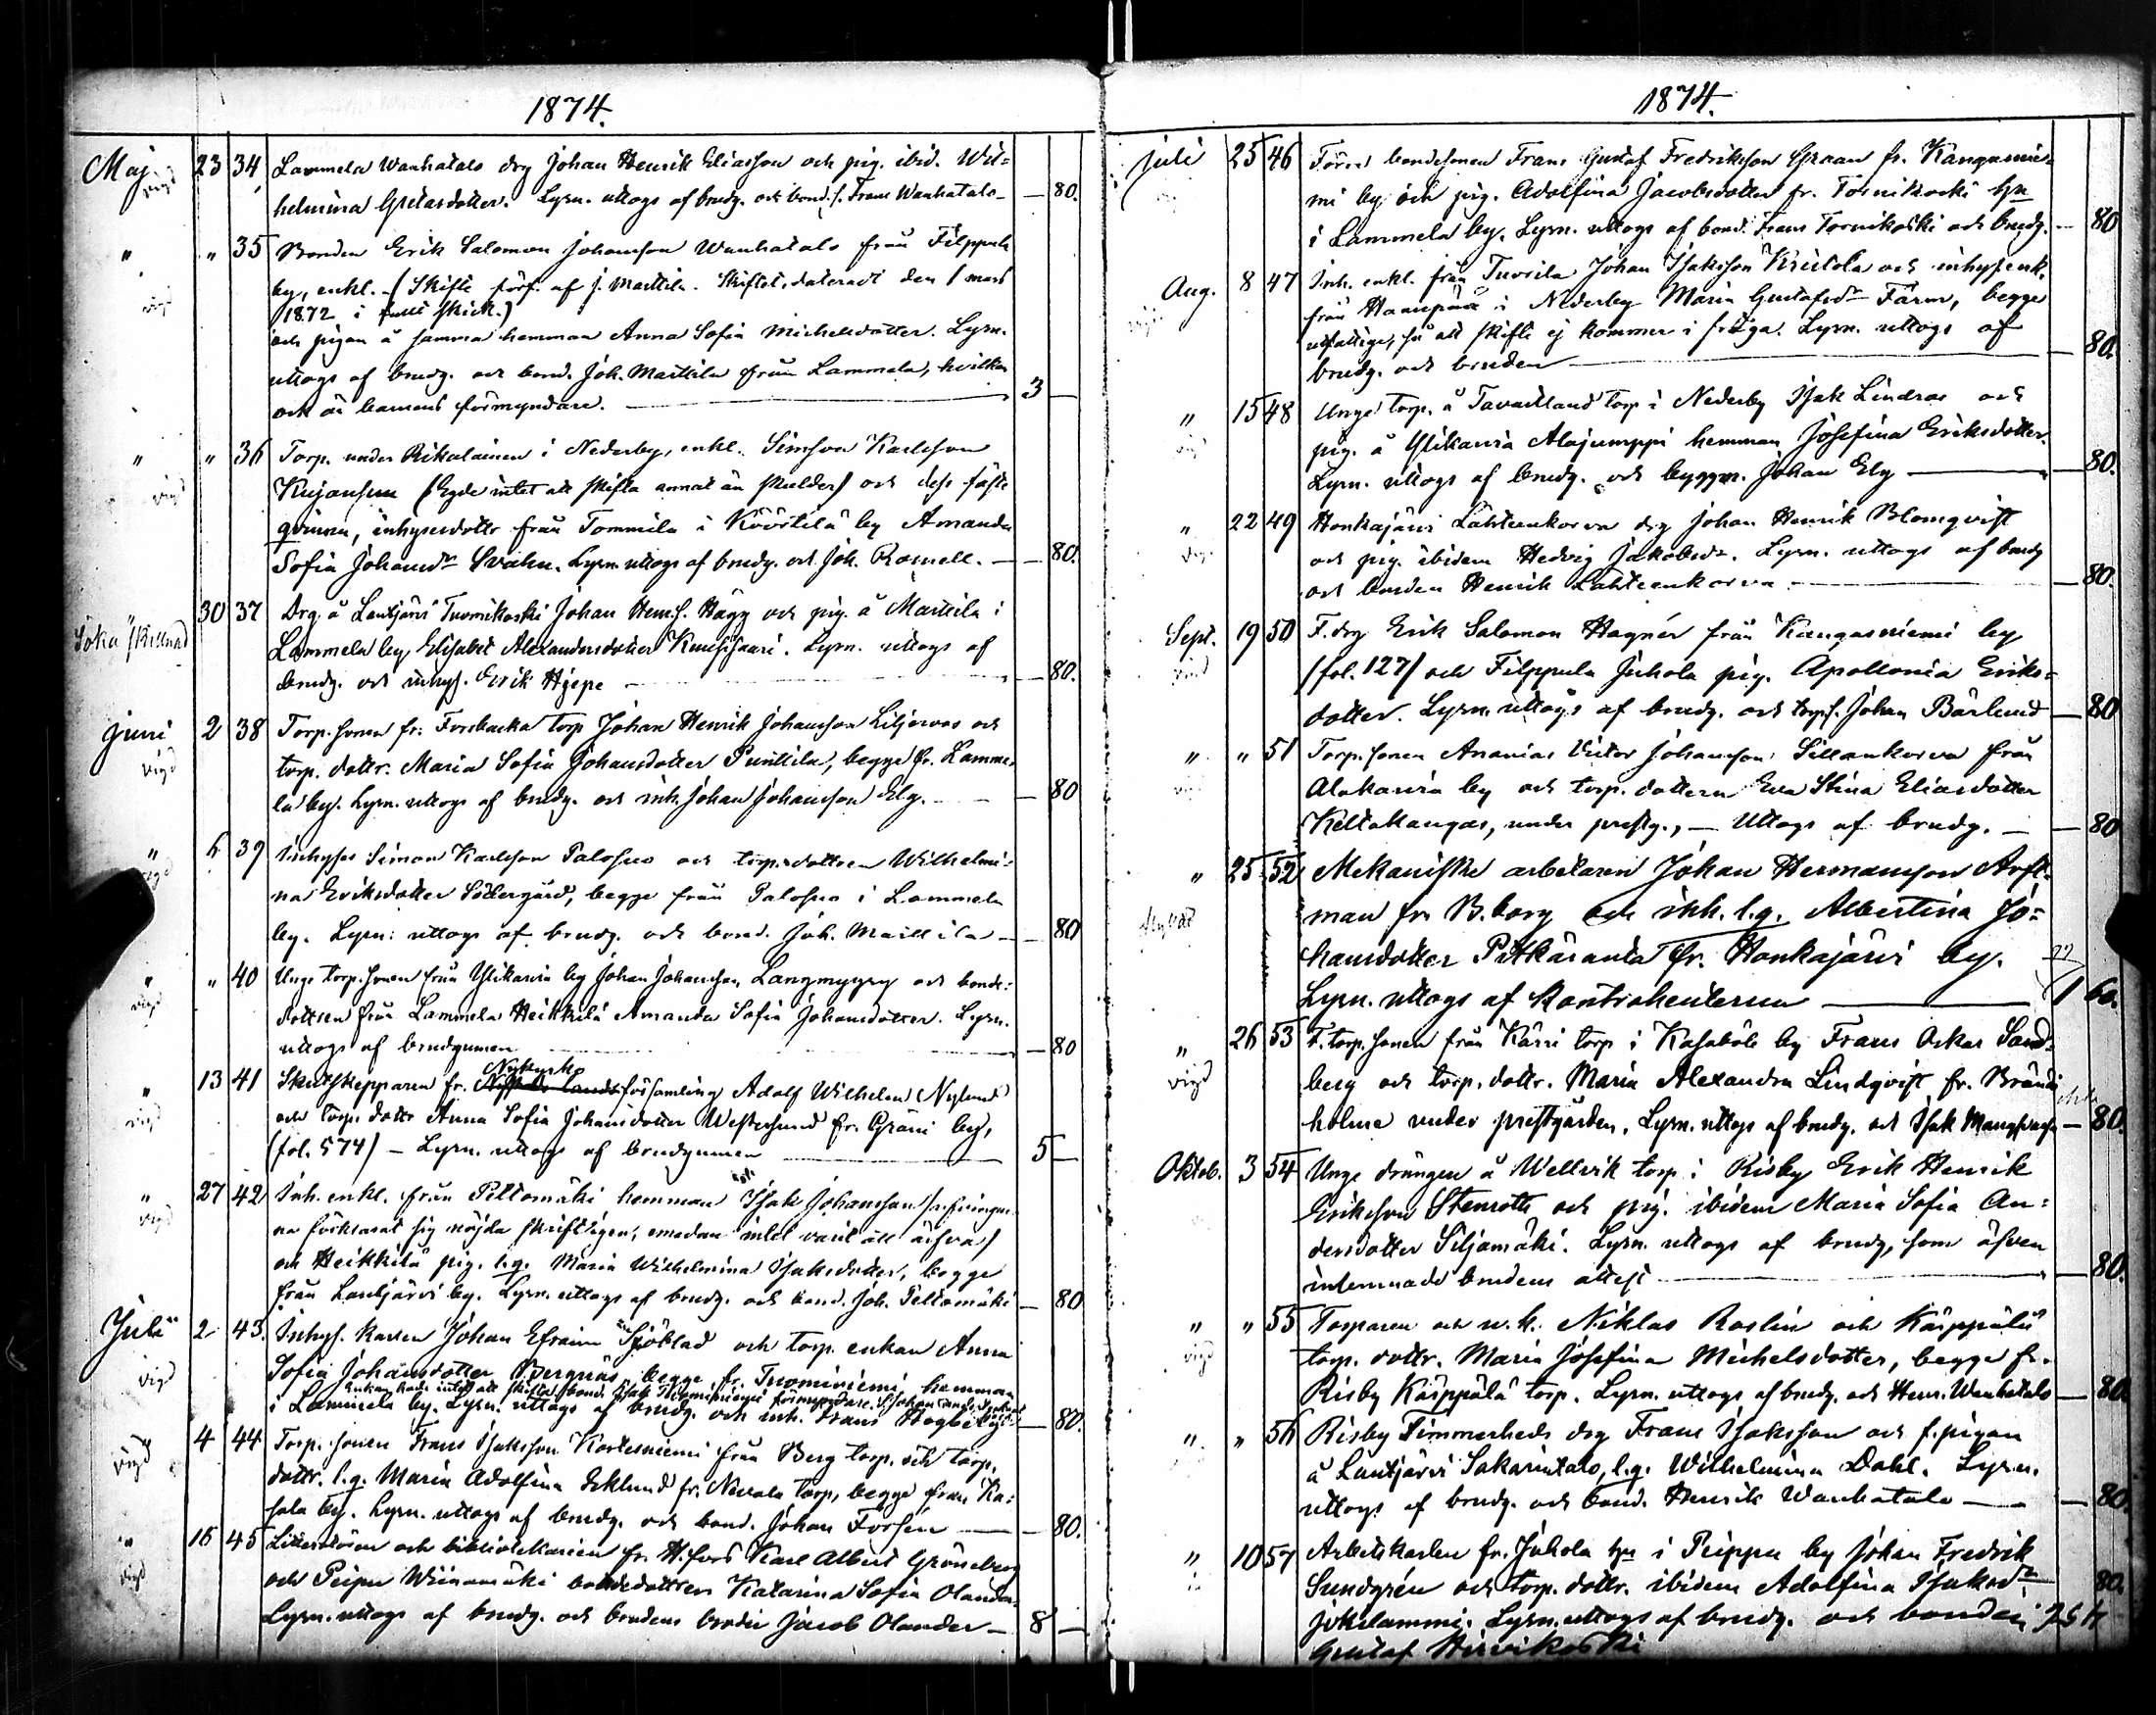 1874.
Maj 23 34 Lammela Wanhatalo drg Johan Henrik Eliasson och pig. ibid. Wil-
vigd helmina Gretasdotter. Lysn. uttogs af brudg. och bond.s. Frans Wanhatalo — 80.
" " 35 Bonden Erik Salomon Johansson Wanhatalo från Filppula
vigd by, enkl. (Skifte förf. af J. Marttila. Skiftet, dateradt den 1 mars
1872 i skick.)
och pigan å samma hemman Anna Sofia Michelsdotter. Lysn.
uttogs af brudg. och bond. Joh. Marttila från Lammela, hvilken
ock är barnens förmyndare. — 3 —
" " 36 Torp. under Rikalainen i Nederby, enkl. Simson Karlsson
vigd Kujansuu (Egde intet att skifta annat än skulder) och dess fäste
qvinna, inhysesdottr från Tommila i Köörtilä by Amanda
Sofia Johansdr Svahn. Lysn. uttogs af brudg. och Joh. Romell. — 80.
30 37 Drg. å Lautjärvi Tuornikoski Johan Henr.s. Hägg och pig. å Marttila i
Söka skillnad Lammela by Elisabet Alexandersdotter Kuusisaari. Lysn. uttogs af
brudg. och inhys. Erik Hjepe — 80.
Juni 2 38 Torp. sonen fr. Forsbacka torp Johan Henrik Johansson Liljeroos och
vigd torp. dottr. Maria Sofia Johansdotter Punttila, begge fr. Lamme-
la by. Lysn. uttogs af brudg. och inh. Johan Johansson Elg. — 80
" 6 39 Inhyses Simon Karlsson Palosuo och torp. dottren Wilhelmi-
vigd na Eriksdotter Södergård, begge från Palosuo i Lammela
by. Lysn. uttogs af brudg. och bond. Joh. Marttila — 80
" " 40 Unge torp. sonen från Ylikauria by Johan Johansson Langmyyry och bonde-
vigd dottren från Lammela Heikkilä Amanda Sofia Johansdotter. Lysn.
uttogs af brudgumen — 80
" 13 41 Skutskepparen fr. Nykyrk församling Adolf Wilhelm Nylund
vigd och torp. dottr Anna Sofia Johansdotter Westersund fr. Gräni by,
(fol. 574) — Lysn. uttogs af brudgumen — 5 —
" 27 42 Inh. enkl. från Peltomäki hemman Isak Johansson
vigd na förklarat sig nöjda skriftligen, emedan intet varit att ärfva)
och Heikkilä pig. l.q. Maria Wilhelmina Isaksdotter, begge
från Lautjärvi by. Lysn. uttogs af brudg. och bond. Joh. Peltomäki — 80
Juli 2 43. Inhys. karlen Johan Efraim Sjöblad och torp. enkan Anna
vigd Sofia Johansdotter Bergnäs, begge fr. Tuominiemi hemman
Enkan hade intet att skifta
i Lammela by. Lysn. uttogs af brudg. och inh. Frans — 80.
4 44 Torp. sonen Frans Isaksson Kortesniemi från Berg torp. och torp.
vigd dottr. l.q. Maria Adolfina Eklund fr. Nevala torp, begge från Ka-
sala by. Lysn. uttogs af brudg. och bond. Johan Forsén — 80.
" 16 45 Litteratören och bibliotekarien fr. H.fors Karl Albert Gröneberg
vigd och Peipu Wiinamäki bondedottren Katarina Sofia Olander.
Lysn. uttogs af brudg. och brudens broder Jacob Olander — 8 —
1874.
Juli 25 46 Förre bondesonen Frans Gustaf Fredriksson Graan fr. Kangasnie-
mi by och pig. Adolfina Jacobsdotter fr. Tornikoski hn
i Lammela by. Lysn. uttogs af bond. Frans Tornikoski och brudg. — 80
Aug. 8 47 Inh. enkl. från Tuorila Johan Isaksson Kriitola och inhysenk.
från Hannpää i Nederby Maria Gustafsdr Färm, begge
utfattige, så att skifte ej kommer i fråga. Lysn. uttogs af
brudg. och bruden — 80.
" 15 48 Unge torp. å Tavastland torp i Nederby Isak Lindroos och
pig. å Ylikauria Alajumppi hemman Josefina Eriksdotter.
Lysn. uttogs af brudg. och byggm. Johan Elg — 80.
" 22 49 Honkajärvi Lähteenkorva drg Johan Henrik Blomqvist
och pig. ibidem Hedvig Jakobsdr. Lysn. uttogs af brudg
och bonden Henrik Lähteenkorva — 80.
Sept. 19 50 F. drg Erik Salomon Hagnér från Kangasniemi by
(fol. 127) och Filppula Juhola pig. Apollonia Eriks-
dotter. Lysn. uttogs af brudg. och torp.s. Johan Bärlund — 80
" " 51 Torp. sonen Ananias Victor Johansson Sillankorva från
Alakauria by och torp. dottern Eva Stina Eliasdotter
Keltakangas, under prestg., — Uttogs af brudg. — 80
" 25 52 Mekaniske arbetaren Johan Hermansson Avst-
man fr. B.borg och inh. l.q. Albertina Jo-
hansdotter Pitkäranta fr. Honkajärvi by.
Lysn. uttogs af kontrahenterna — 1 60.
" 26 53 F. torp. sonen från Kärri torp i Kasaböle by Frans Oskar Sand-
vigd berg och torp. dottr. Maria Alexandra Lindqvist fr. Bränd-
holme under prestgården. Lysn. uttogs af brudg. och Isak — 80.
Oktob. 3 54 Unge drängen å Wellvik torp i Risby Erik Henrik
Eriksson Stenroth och pig. ibidem Maria Sofia An-
dersdotter Siljamäki. Lysn. uttogs af brudg, som äfven
inlemnade brudens attest — 80.
" " 55 Torparen och u.k. Niklas Roslin och Käippälä
vigd torp. dottr. Maria Josefina Michelsdotter, begge fr.
Risby Käippälä torp. Lysn. uttogs af brudg. och Henr. Wanhatalo — 80.
" " 56 Risby Timmerheds drg Frans Isaksson och f. pigan
å Lautjärvi Sakarintalo, l.q. Wilhelmina Dahl. Lysn.
uttogs af brudg. och bond. Henrik Wanhatalo — 80.
" 10 57 Arbetskarlen fr. Juhola hn i Peippu by Johan Fredrik
Sundgrén och torp. dottr. ibidem Adolfina Isaksdr 80.
Jokilammi. Lysn. uttogs af brudg. och bonden
Gustaf Hirvikoski